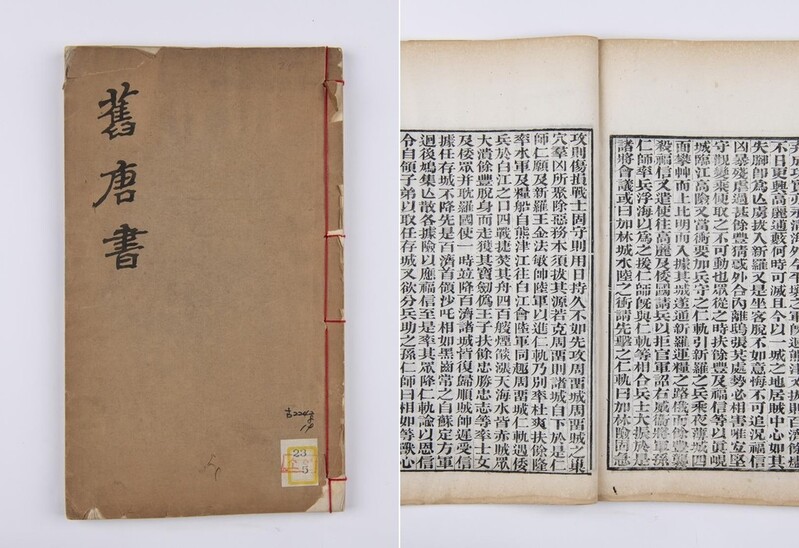 舊唐書
古2242
23
5
不日更興高麗逋藪何時可滅且今以一城之地居賊中心如其
失腳即為亡虜拔入新羅又是坐客脫不如意悔不可追況福信
凶暴殘虐過甚餘豐猜惑外合內離鴟張共處勢必相害唯宜堅
守觀變乘便取之不可動也眾從之時扶餘豐及福信等以真峴
城臨江高險又當衝要加兵守之仁軌引新羅之兵乘夜薄城四
面攀艸而上比明而入據其城遂通新羅運糧之路俄而餘豐襲
殺福信又遣使往高麗及倭國請兵以拒官軍詔右威衛將軍孫
仁師率兵浮海以為之援仁師既與仁軌等相合兵士大振於是
諸將會議或曰加林城水陸之衝請先擊之仁軌曰加林險固急
攻則傷損戰士固守則用日持久不如先攻周畱城周畱賊之巢
穴羣凶所聚除惡務本須拔其源若克周畱則諸城自下於是仁
師仁願及新羅王金法敏帥陸軍以進仁軌乃別率杜爽扶餘隆
率水軍及糧船自熊津江往白江會陸軍同趣周畱城仁軌遇倭
兵於白江之口四戰捷焚其舟四百艘煙燄漲天海水皆赤賊眾
大潰餘豐脫身而走獲其寶劒偽王子扶餘忠勝忠志等率士女
及倭眾并耽羅國使一時竝降百濟諸城皆復歸順賊帥遲受信
據任存城不降先是百濟首領沙吒相如黑齒常之自蘇定方軍
迴後鳩集亡散各據險以應福信至是率其眾降仁軌諭以恩信
令自領子弟以取任存城又欲分兵助之孫仁師曰相如等獸心